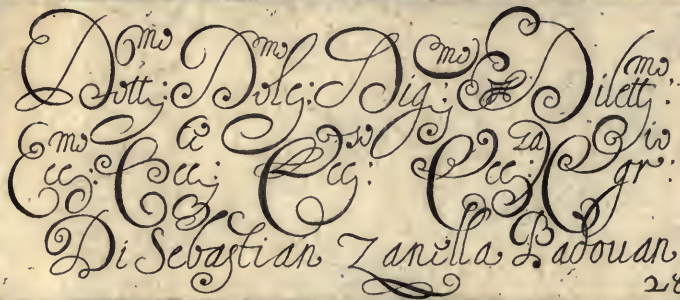 Dott:mo Dolc:mo Dig:mo & Dilett:mo
Ecc:mo Ecc: Ecc:so Ecc:za Egr:io
Di Sebastian Zanella Padouan
28